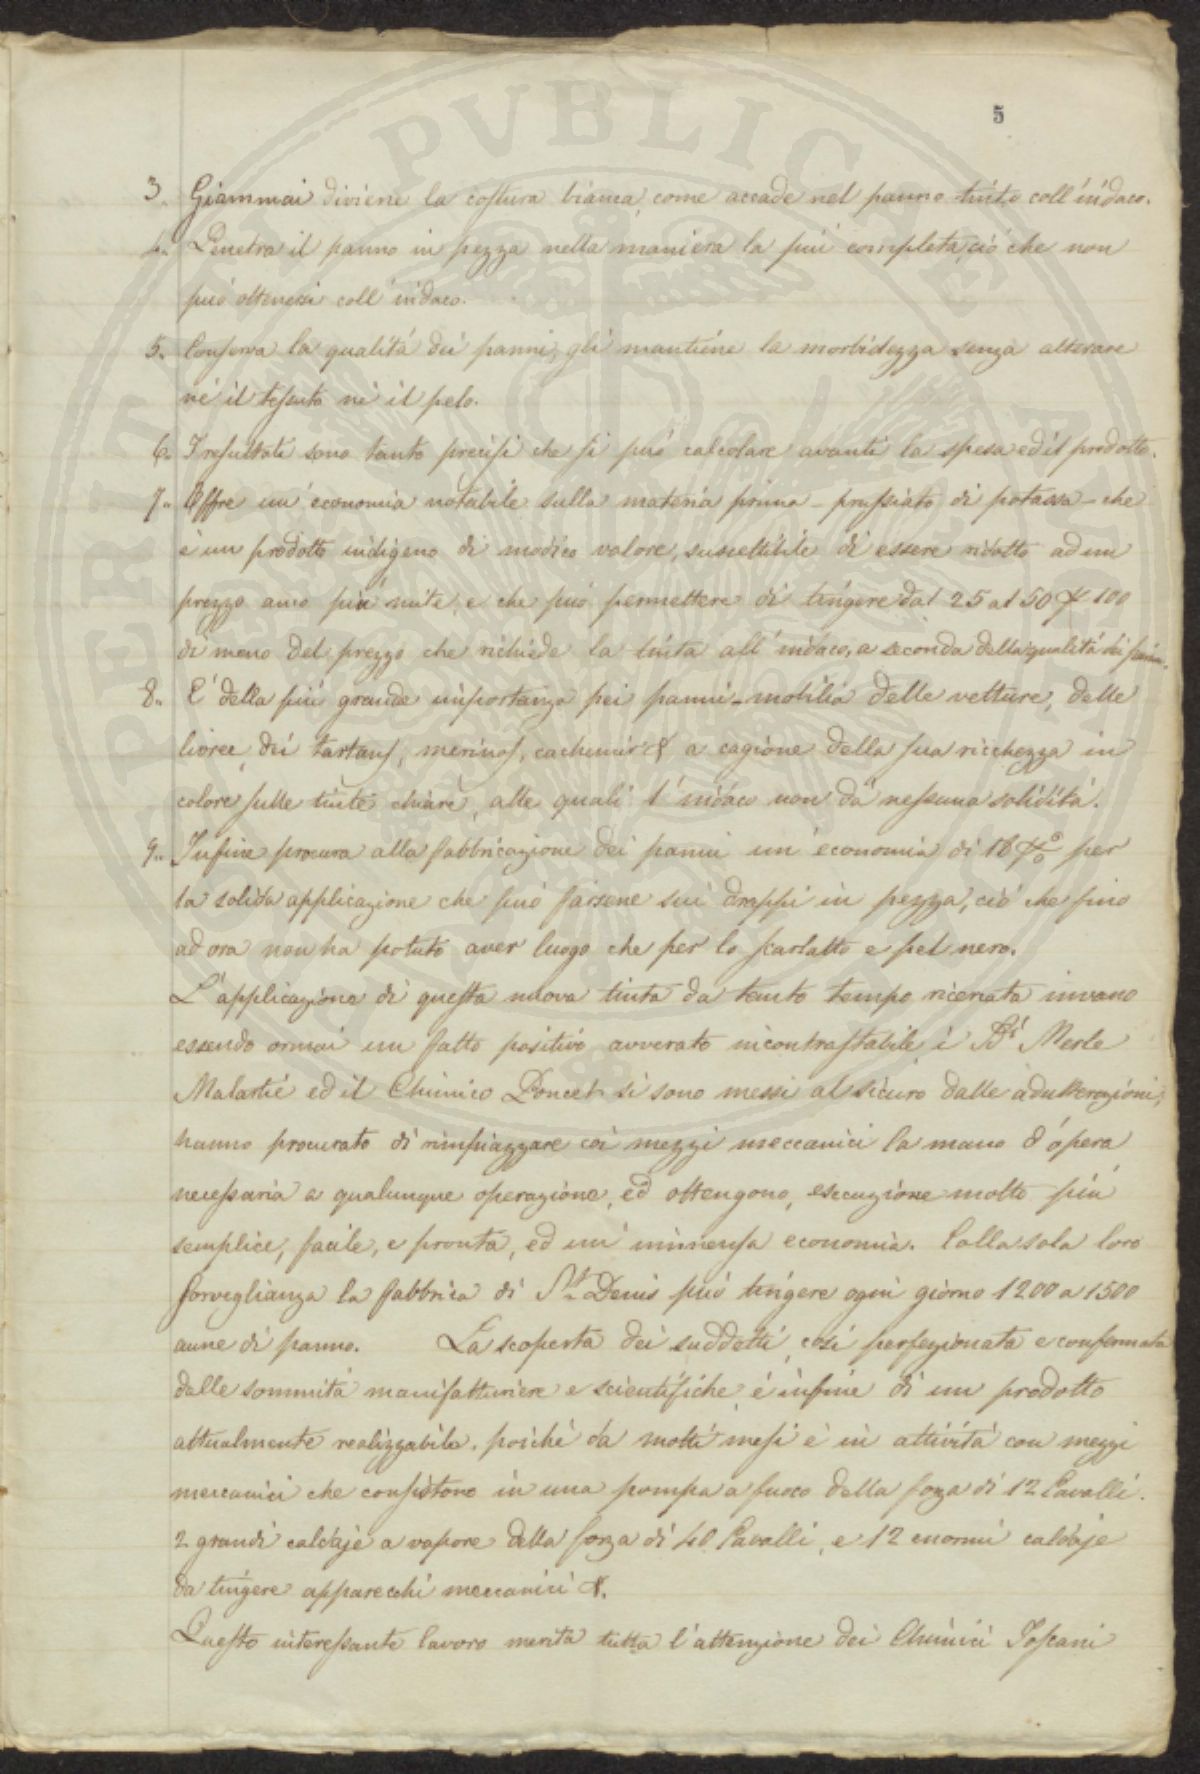 5
3. Giammai diviene la costura bianca, come accade nel panno tinto coll'indaco.
4. Penetra il panno in pezza nella maniera la più completa, ciò che non
può ottenersi coll'indaco.
5. Conserva la qualità dei panni, gli mantiene la morbidezza senza alterare
nè il tessuto nè il pelo.
6. I resultati sono tanto precisi che si può calcolare avanti la spesa ed il prodotto.
7. Offre un'economia notabile sulla materia prima - prussiato di potassa - che
è un prodotto indigeno di modico valore, suscettibile di essere ridotto ad un
prezzo anco più mite, e che può permettere di tingere dal 25 al 50 % 100
di meno del prezzo che richiede la tinta all'indaco, a seconda della qualità dei panni.
8. È della più grande importanza pei panni-mobilia delle vetture, delle
livree, dei tartans, merinos, cachemir & a cagione della sua ricchezza in
colore sulle tinte chiare, alle quali l'indaco non dà nessuna solidità.
9. Infine procura alla fabbricazione dei panni un'economia di 18 % per
la solida applicazione che può farsene sui drappi in pezza, ciò che fino
ad ora non ha potuto aver luogo che per lo scarlatto e pel nero.
L'applicazione di questa nuova tinta da tanto tempo ricercata invano
essendo ormai un fatto positivo avverato incontrastabile, i Sri Merle
Malartié ed il Chimico Poncet si sono messi al sicuro dalle adulterazioni,
hanno procurato di rimpiazzare coi mezzi meccanici la mano d'opera
necessaria a qualunque operazione, ed ottengono, esecuzione molto più
semplice, facile, e pronta, ed un'immensa economia. Colla sola loro
sorveglianza la fabbrica di St. Denis può tingere ogni giorno 1200 a 1500
aune di panno. La scoperta dei suddetti, così perfezionata e confermata
dalle sommità manifatturiere e scientifiche, è infine di un prodotto
attualmente realizzabile, poichè da molti mesi è in attività con mezzi
meccanici che consistono in una pompa a fuoco della forza di 12 Cavalli.
2 grandi caldaje a vapore della forza di 40 Cavalli, e 12 enormi caldaje
da tingere apparecchi meccanici &.
Questo interessante lavoro merita tutta l'attenzione dei Chimici Toscani